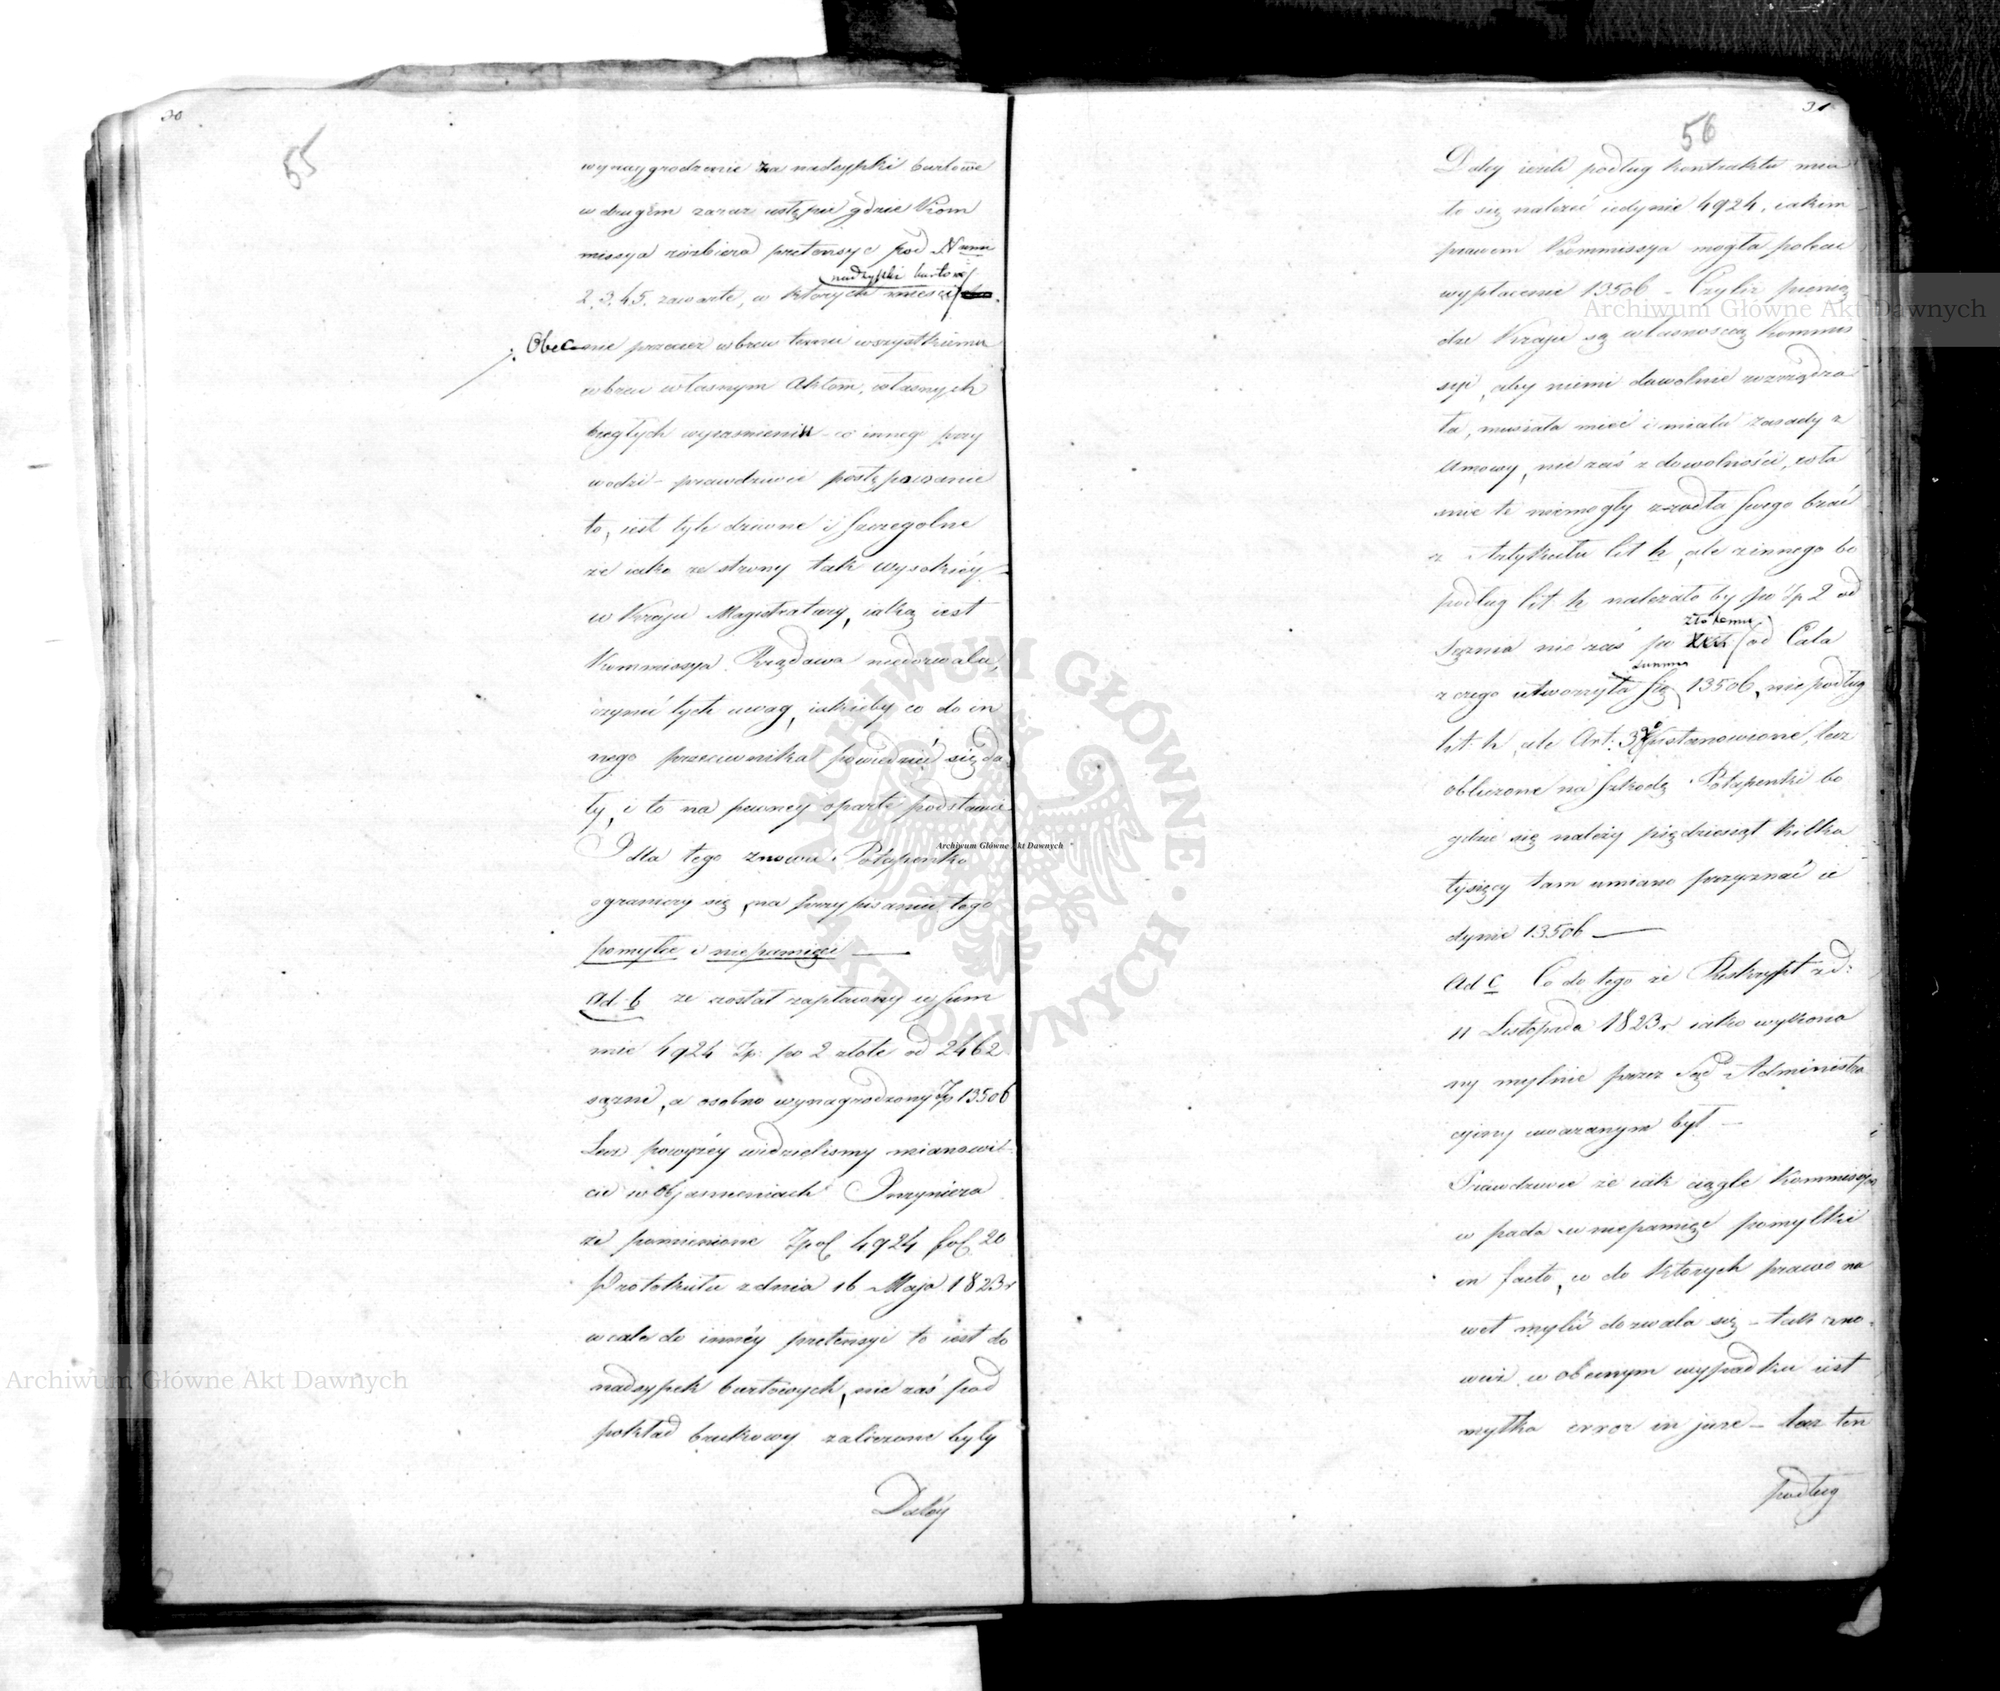 30
55
wynaygrodzenie za nadsypki burtowe
w drugiem zaraz ustępie gdzie Kom
missya rozbiera pretensye pod Num
nadsypki burtowe
2. 3. 45. zawarte, w ktorych miesci
Obecnie przecież wbrew temu wszystkiemu
wbrew własnym Aktom, własnych
biegłych wyjasnieniu - co innego przy
wodzi - prawdziwie postępowanie
to, iest tyle dziwne i szczegolne
że iako ze strony tak wysokiéy
w Kraju Magistratury, iaką iest
Kommissya Rządowa niedozwala,
czynić tych uwag, iakieby co do in
nego przeciwnika powiedzieć się da
ły, i to na pewney oparte podstawie
I dla tego znowu Potapenko
ograniczy się na przypisaniu tego
pomyłce i niepamięci
Ad b że został zapłacony w sum
mie 4924 Zp: po 2 złote od 2462
sążni, a osobno wynagrodzony Zp 13506
Lecz powyżéy widzielismy mianowi-
cie w Objasnieniach Inzyniera
że pomienione Zpol 4924 fol 20
Protokułu z dnia 16 Maja 1823 r
wcale do innéy pretensyi to iest do
nadsypek burtowych, nie zaś pod
pokład brukowy zaliczone były
Daléy
31
56
Daley ieżeli podług kontraktu mia
ło się należeć iedynie 4924, iakim
prawem Kommissya mogła polecić
wypłacenie 13506 - Czyliż pienią
dze Kraju są własnoscią Kommis
syi, aby niemi dowolnie rozrządza
ła, musiała mieć i miała zasady z
Umowy, nie zaś z dowolności, wła
snie te niemogły zrzodła swego brać
z Artykułu lit h, ale z innego bo
podług lit h należało by po Zp 2 od
złotemu
Sążnia nie zaś po od Cala
summa
z czego utworzyła się 13506, nie podług
lit. h, ale Art: 3 postanowione, lecz
obliczone na szkodę Potapenki bo
gdzie się należy pięćdziesiąt kilka
tysięcy tam umiano przyznać ie
dynie 13506
Ad c Co do tego że Reskrypt z d:
11 Listopada 1823 r iako wykona
ny mylnie przez Sąd Administra
cyiny uważanym był -
Prawdziwie że iak ciągle Kommissya
w pada w niepamięć pomyłki
in facto, co do ktorych prawo na
wet mylić dozwala się - tak zno
wuż w obecnym wypadku iest
myłka error in jure - lecz ten
podług
Archiwum Główne Akt Dawnych
Archiwum Główne Akt Dawnych
Archiwum Główne Akt Dawnych
ARCHIWUM GŁÓWNE AKT DAWNYCH